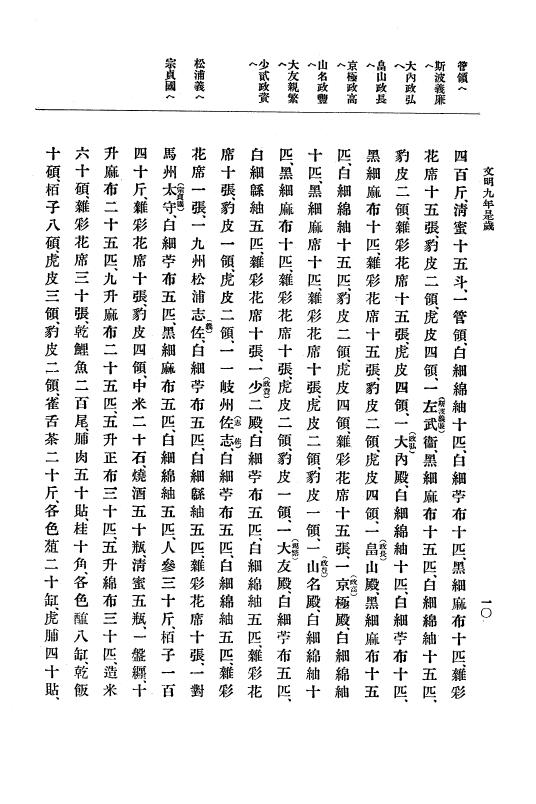 文明九年是歲
一〇
管領へ
斯波義廉へ
大內政弘へ
畠山政長へ
京極政高へ
山名政豐へ
大友親繁へ
少貳政資へ
松浦義へ
宗貞國へ
四百斤、淸蜜十五斗、一管領、白細綿紬十匹、白細苧布十匹、黑細麻布十匹、雜彩
花席十五張、豹皮二領、虎皮四領、一左武衞、(斯波義廉)黑細麻布十五匹、白細綿紬十五匹、
豹皮二領、雜彩花席十五張、虎皮四領、一大內殿、(政弘)白細綿紬十匹、白細苧布十匹、
黑細麻布十匹、雜彩花席十五張、豹皮二領、虎皮四領、一畠山殿、(政長)黑細麻布十五
匹、白細綿紬十五匹、豹皮二領、虎皮四領、雜彩花席十五張、一京極殿、(政高)白細綿紬
十匹、黑細麻席十匹、雜彩花席十張、虎皮二領、豹皮一領、一山名殿、(政豐)白細綿紬十
匹、黑細麻布十匹、雜彩花席十張、虎皮二領、豹皮一領、一大友殿、(親繁)白細苧布五匹、
白細緜紬五匹、雜彩花席十張、一少二殿、(政資)白細苧布五匹、白細綿紬五匹、雜彩花
席十張、豹皮一領、虎皮二領、一一岐州佐志、白細苧布五匹、白細綿紬五匹、雜彩
花席一張、一九州松浦志佐、(義)白細苧布五匹、白細緜紬五匹、雜彩花席十張、一對
馬州太守、(宗貞國)白細苧布五匹、黑細麻布五匹、白細綿紬五匹、人參三十斤、栢子一百
四十斤、雜彩花席十張、豹皮四領、中米二十石、燒酒五十瓶、淸蜜五瓶、一盤纒、十
升麻布二十五匹、九升麻布二十五匹、五升正布三十匹、五升綿布三十匹、造米
六十碩、雜彩花席三十張、乾鯉魚二百尾、脯肉五十貼、桂十角、各色醢八缸、乾飯
十碩、栢子八碩、虎皮三領、豹皮二領、雀舌茶二十斤、各色葅二十缸、虎脯四十貼、